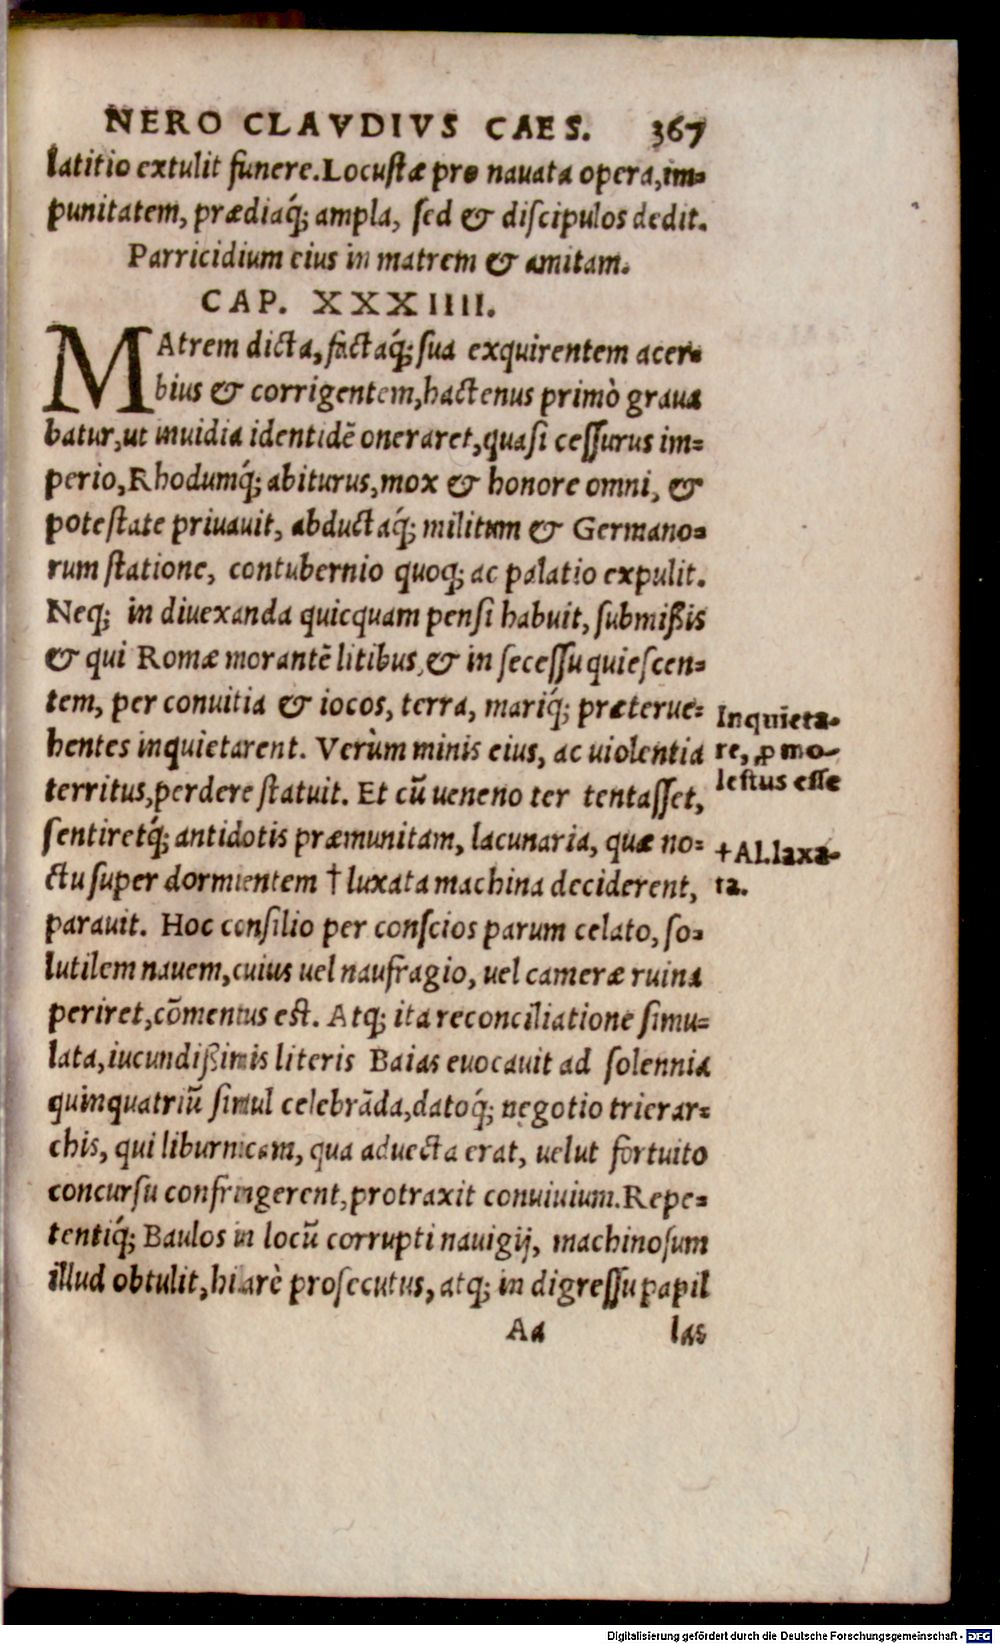 NERO CLAVDIVS CAES. 367
latitio extulit funere. Locustæ pro nauata opera, im=
punitatem, prædiaq́; ampla, sed & discipulos dedit.
Parricidium eius in matrem & amitam.
CAP. XXXIIII.
MAtrem dicta, factaq́; sua exquirentem acer=
bius & corrigentem, hactenus primò graua
batur, ut inuidia identidẽ oneraret, quasi cessurus im=
perio, Rhodumq́; abiturus, mox & honore omni, &
potestate priuauit, abductaq́; militum & Germano=
rum statione, contubernio quoq; ac palatio expulit.
Neq; in diuexanda quicquam pensi habuit, submißis
& qui Romæ morantẽ litibus, & in secessu quiescen=
tem, per conuitia & iocos, terra, mariq́; præterue=
hentes inquietarent. Verùm minis eius, ac uiolentia
territus, perdere statuit. Et cũ ueneno ter tentasset,
sentiretq́; antidotis præmunitam, lacunaria, quæ no=
ctu super dormientem † luxata machina deciderent,
parauit. Hoc consilio per conscios parum celato, so=
lutilem nauem, cuius uel naufragio, uel cameræ ruina
periret, cõmentus est. Atq; ita reconciliatione simu=
lata, iucundißimis literis Baias euocauit ad solennia
quinquatriũ simul celebrãda, datoq́; negotio trierar=
chis, qui liburnicam, qua aduecta erat, uelut fortuito
concursu confringerent, protraxit conuiuium. Repe=
tentiq́; Baulos in locũ corrupti nauigij, machinosum
illud obtulit, hilarè prosecutus, atq; in digressu papil
Aa las
Inquieta=
re, ꝓ mo=
lestus esse
† Al. laxa=
ta.
Digitalisierung gefördert durch die Deutsche Forschungsgemeinschaft - DFG